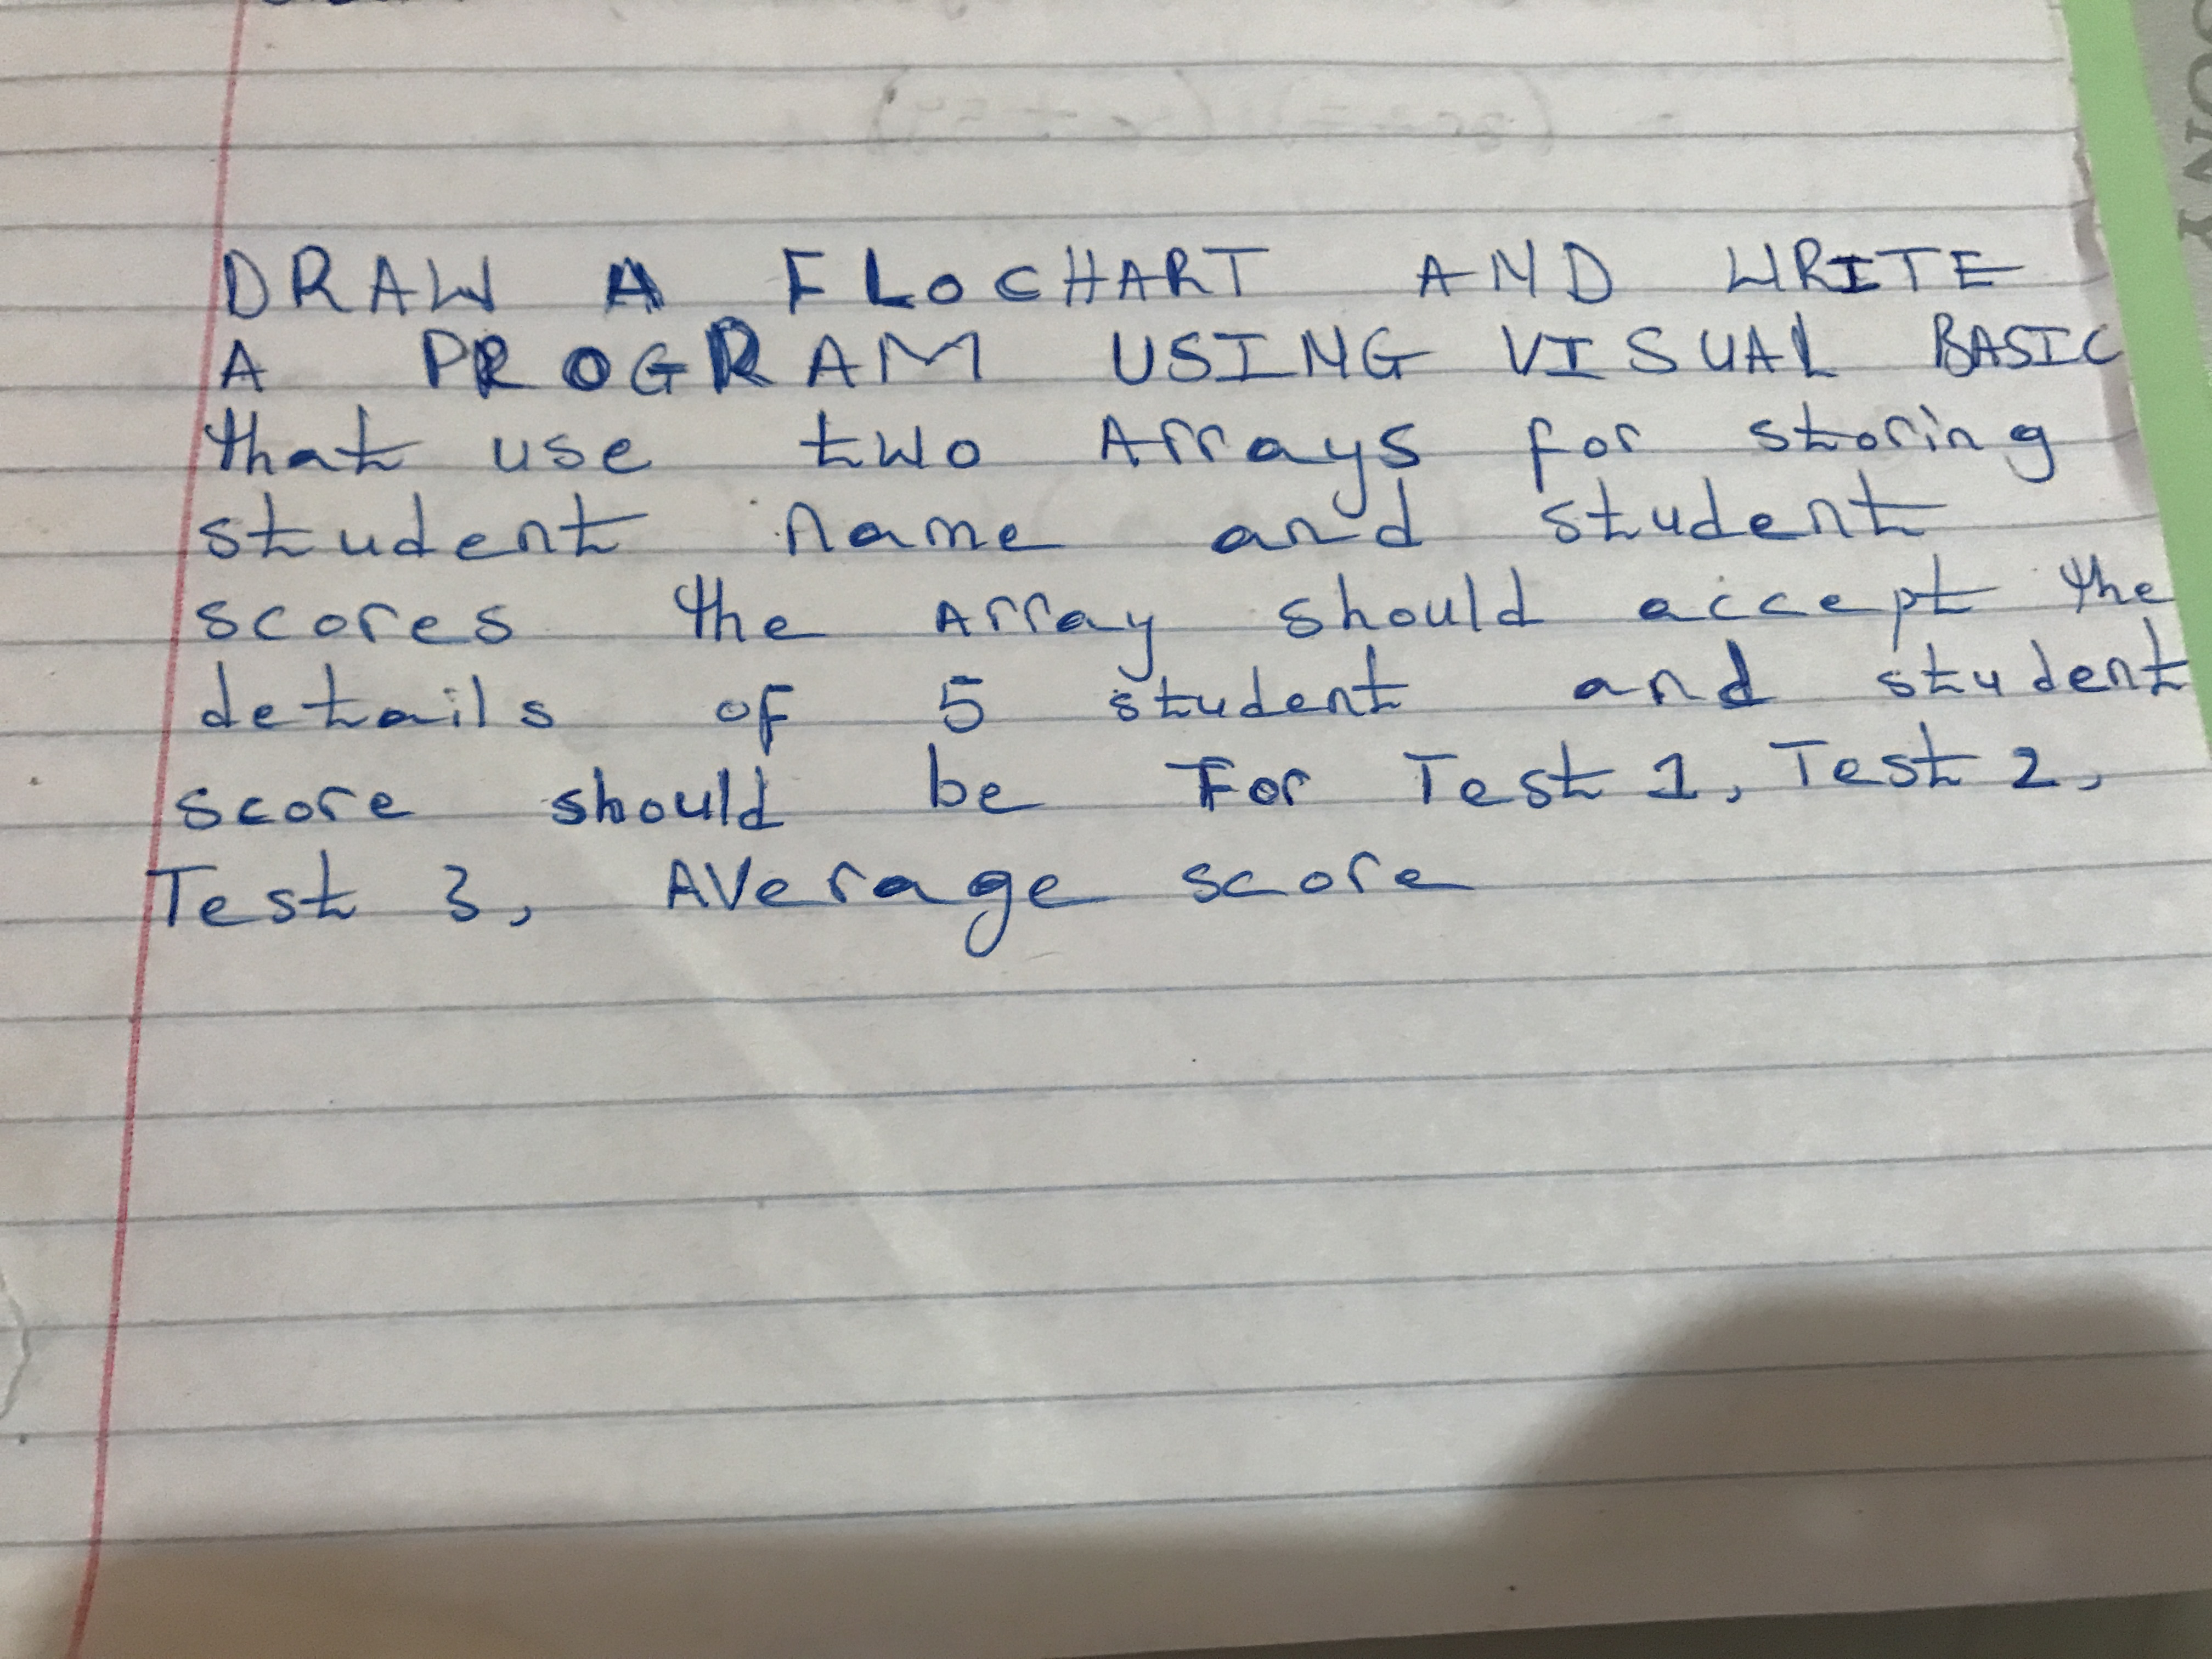 DRAW A FLOCHART AND WRITE
A PROGRAM USING VISUAL BASIC
that use two Arrays for storing
student name and student
scores the Array should accept the
details of 5 student and student
score should be For Test 1, Test 2,
Test 3, Average score